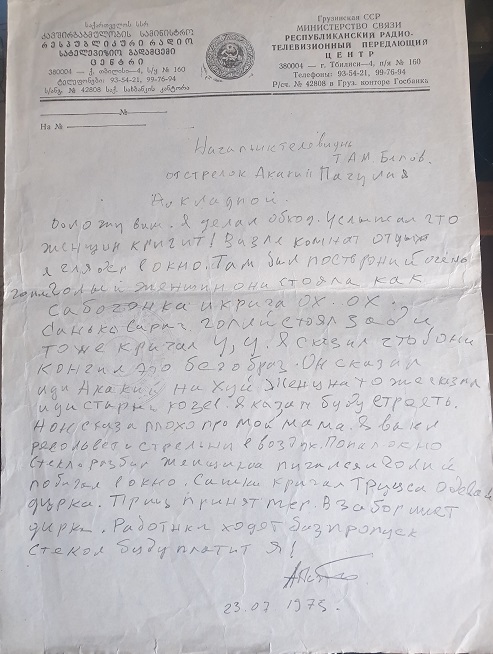 საქართველოს სსრ
კავშირგაბმულობის სამინისტრო
რესპუბლიკური რადიო
სატელევიზიო გადამცემი
ცენტრი
380004 — ქ. თბილისი—4, ს/ყ № 160
ტელეფონები: 93-54-21, 99-76-94
ს/ანგ. № 42808 საქ. სახბანკის კანტორა
Грузинская ССР
МИНИСТЕРСТВО СВЯЗИ
РЕСПУБЛИКАНСКИЙ РАДИО-
ТЕЛЕВИЗИОННЫЙ ПЕРЕДАЮЩИЙ
ЦЕНТР
380004 — г. Тбилиси—4, п/я № 160
Телефоны: 93-54-21, 99-76-94
Р/сч. № 42808 в Груз. конторе Госбанка
№
На №
Там
от стрелок Акакий
Докладной.
Доложу вам. Я делал обход. Услышал что
женщин кричит! Вазле комнат отдых
я гляжу в окно. Там был посторони и очень
голи женщин они стояла как
сабочонка и крича ОХ. ОХ.
Санько голий стоял зади
тоже кричал У, У. Я сказил чтобы они
кончил это безобраз. Он сказал
иди Акакий на хуй. Женшина тоже сказил
иди стари козел. Я сказал буду стрять.
Но он сказа плохо про мой мама. Я вынул
револьвет и стрельнил в воздух. Попал окно
стекло разбил женщина пугался и голий
побижал в окно. Сашка кричал Труса одевал
дурка. Приш принят мер. В забор шиет
дирка. Работники ходят без пропуск
стекол буду платит Я!
23.07 1975.